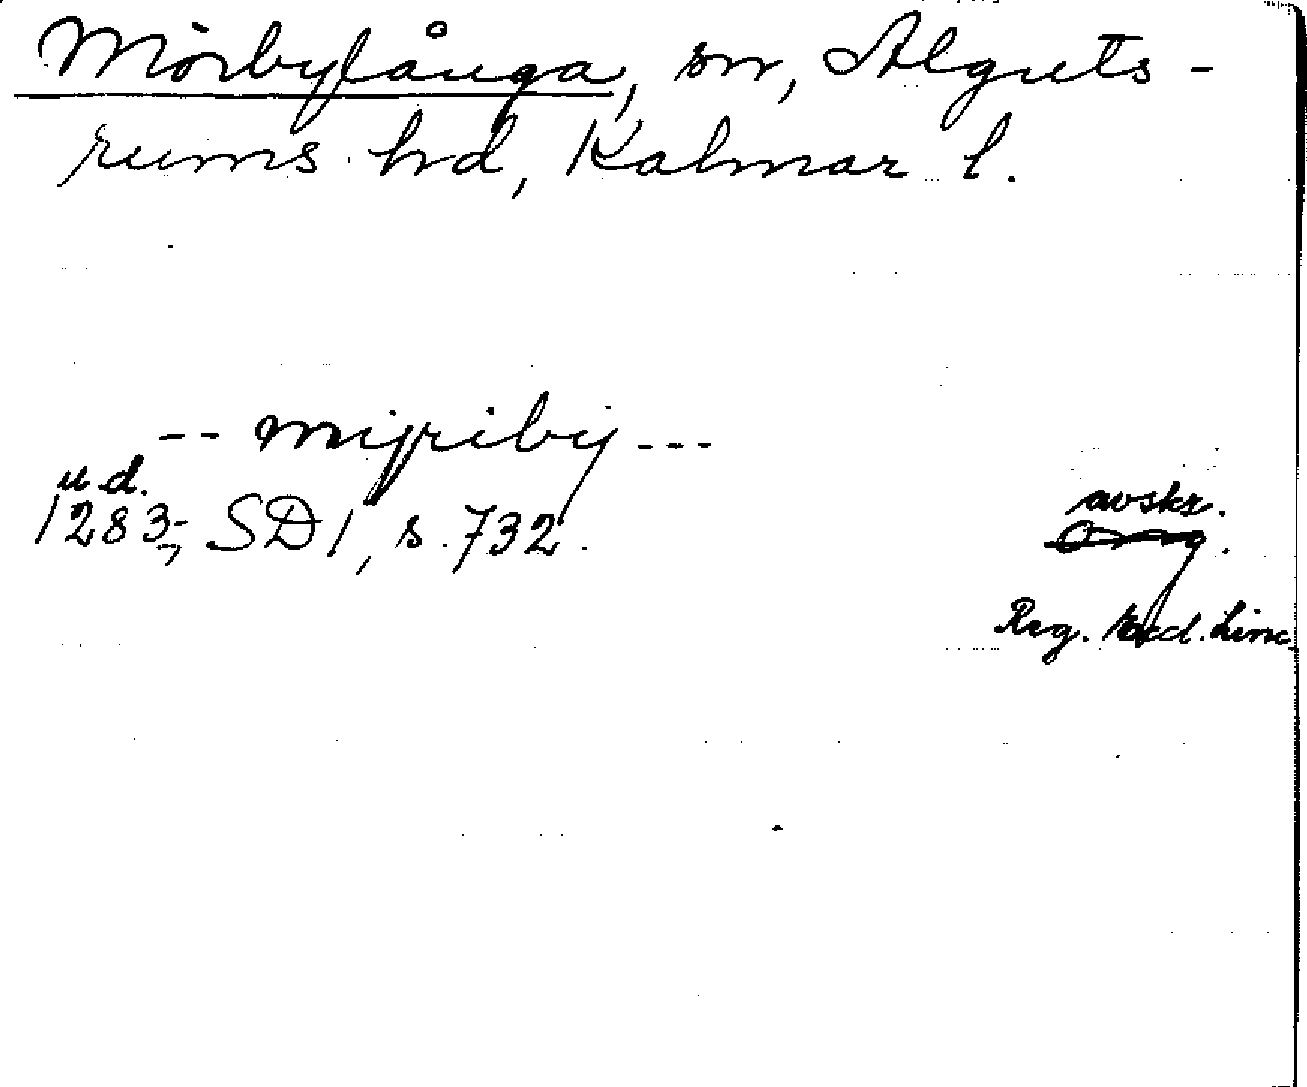 Mörbylånga, sn, Alguts-
rums hd, Kalmar l.
-- mijriby ---
u.d.
1283; SD 1, s. 732.
avskr.
Orig.
Reg. Eccl. Linc.